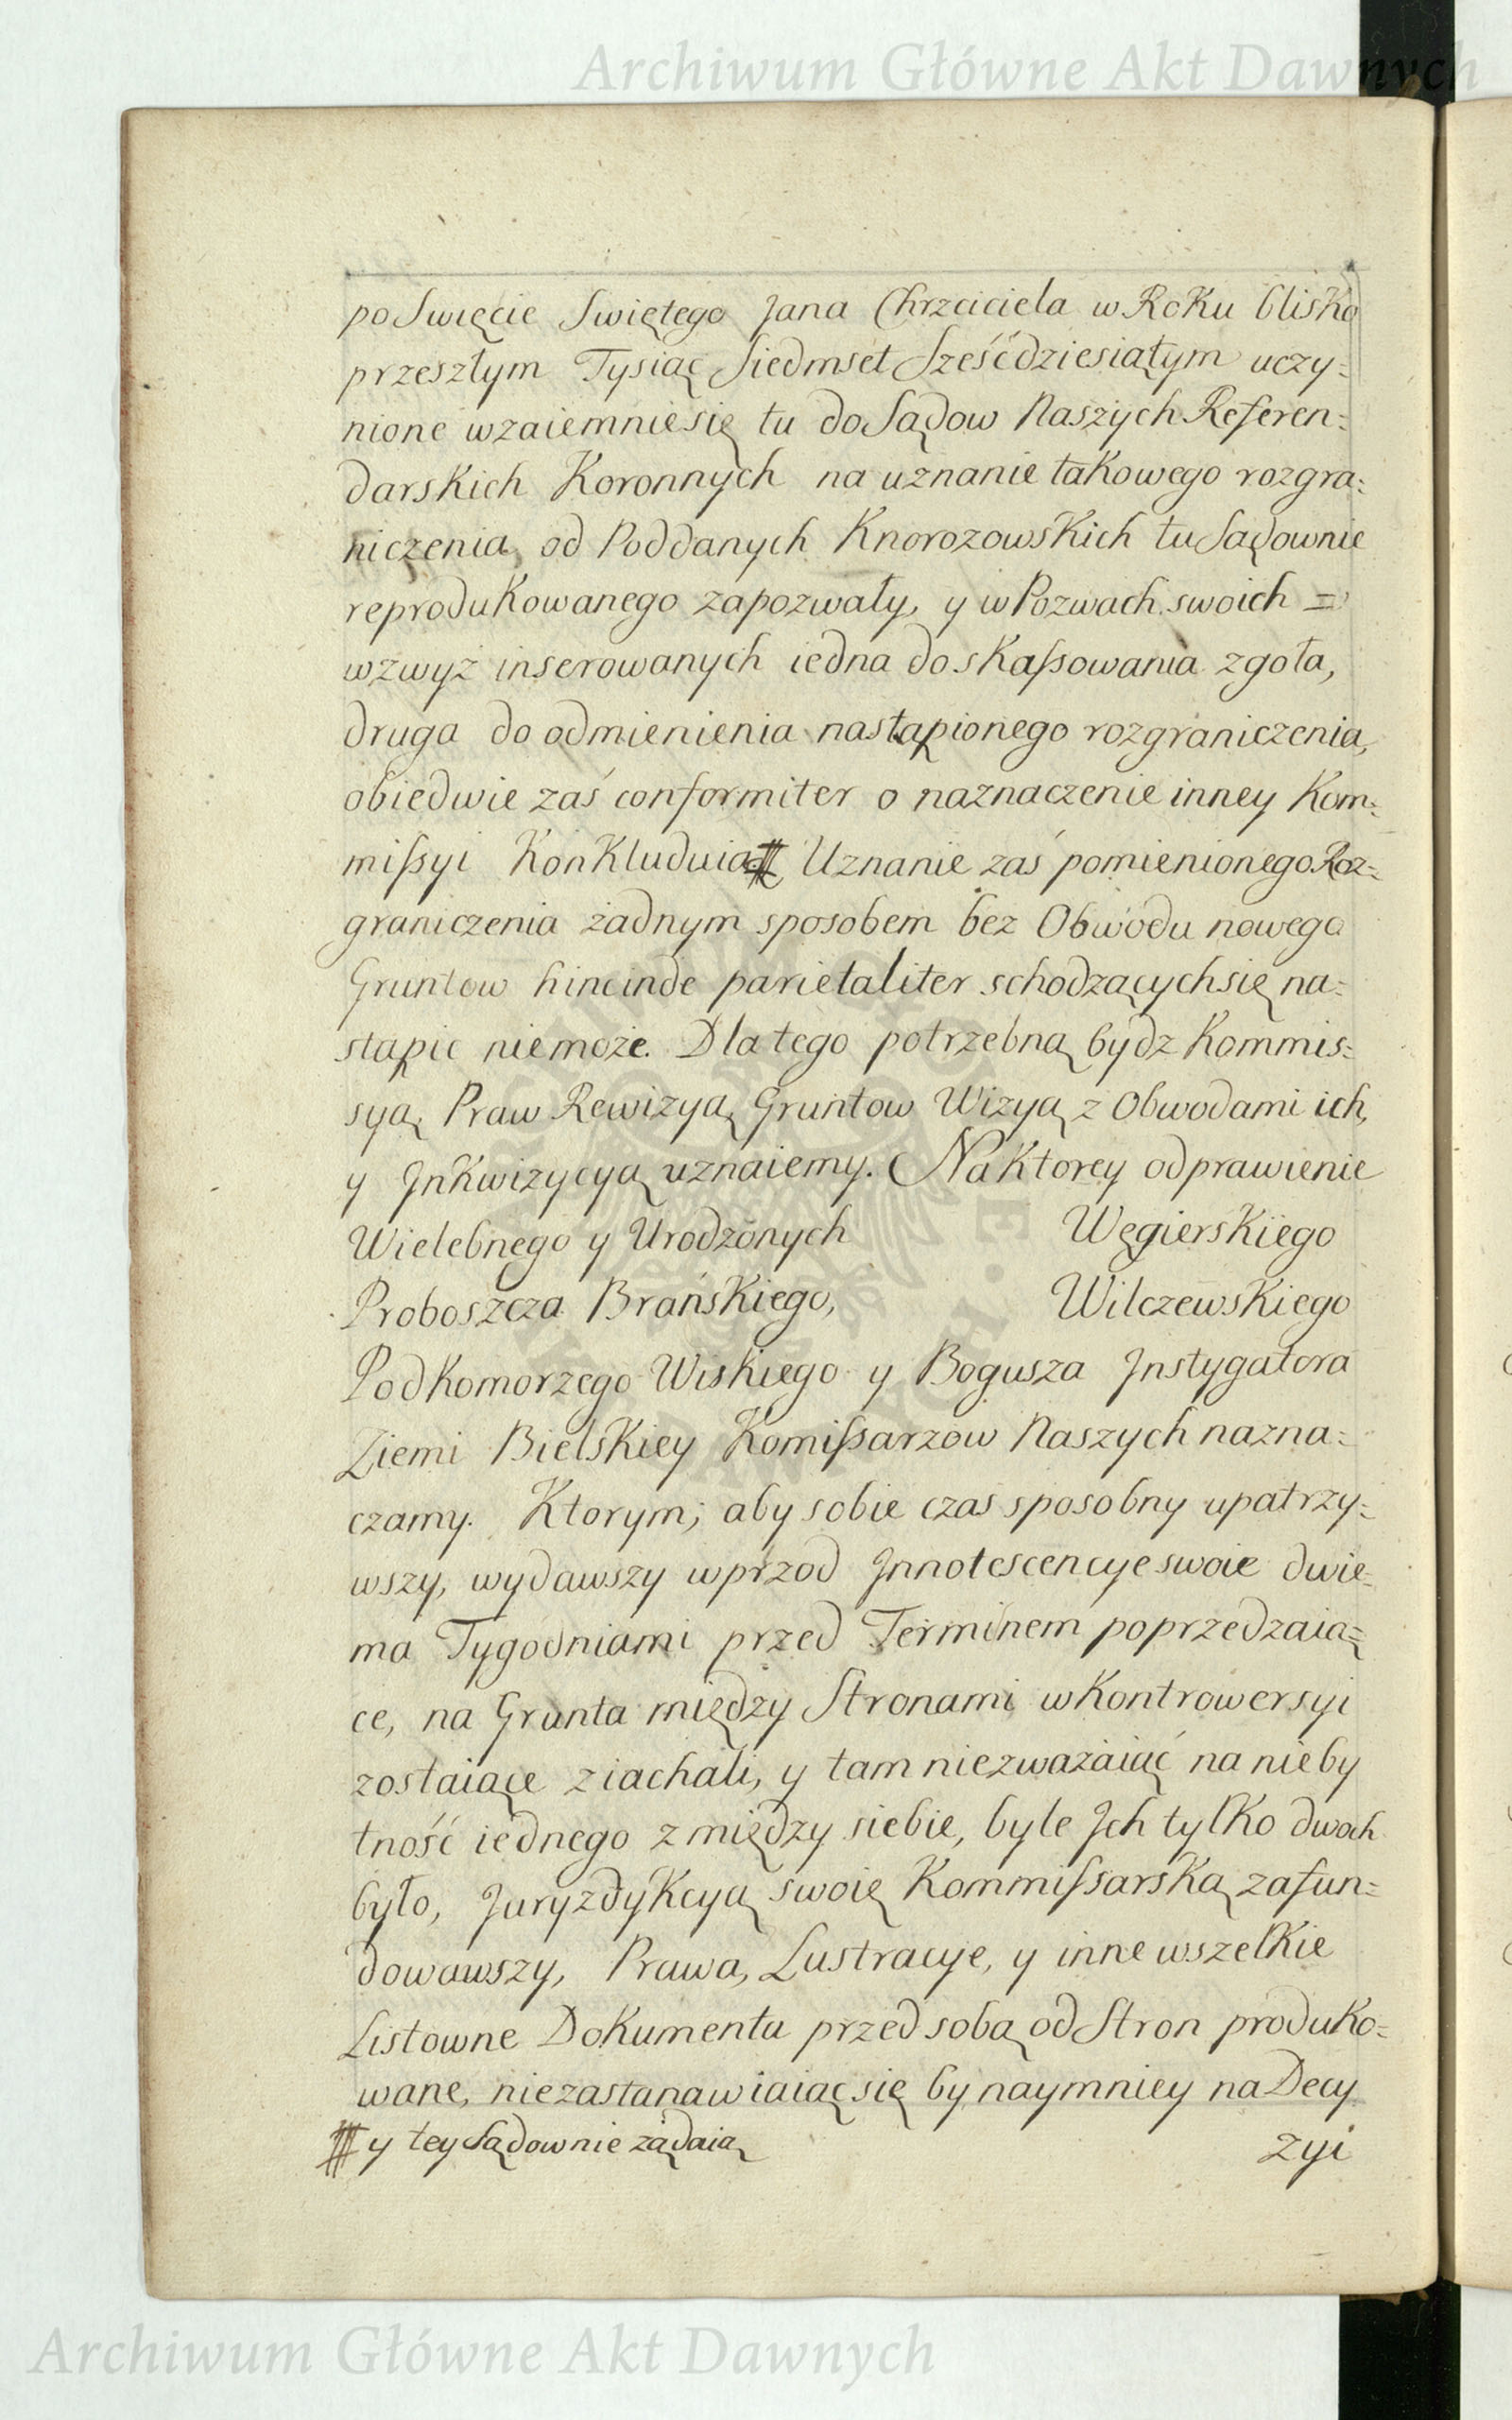 Archiwum Główne Akt Dawnych
po Swięcie Swiętego Jana Chrzciciela w Roku blisko
przeszłym Tysiąc Siedmset Sześćdziesiątym uczy=
nione wzaiemnie się tu do Sądow Naszych Referen=
darskich Koronnych na uznanie takowego rozgra=
niczenia, od Poddanych Knorozowskich tu Sądownie
reprodukowanego zapozwały, y w Pozwach swoich =
wzwyż inserowanych iedna do skaſsowania zgoła,
druga do odmienienia nastąpionego rozgraniczenia,
obiedwie zaś conformiter o naznaczenie inney Kom=
miſsyi Konkluduią # Uznanie zaś pomienionego Roz=
graniczenia żadnym sposobem bez Obwodu nowego
Gruntow hincinde parietaliter schodzących się na=
stąpic niemoże. Dlatego potrzebną bydz Kommis=
syą, Praw Rewizyą, Gruntow Wizyą z Obwodami ich,
y Jnkwizycyą uznaiemy. Na Ktorey odprawienie
Wielebnego y Urodzonych Węgierskiego
Proboszcza Brańskiego, Wilczewskiego
Podkomorzego Wiskiego y Bogusza Jnstygatora
Ziemi Bielskiey Komiſsarzow Naszych nazna=
czamy. Ktorym; aby sobie czas sposobny upatrzy=
wszy, wydawszy wprzod Jnnotescencye swoie dwie=
ma Tygodniami przed Terminem poprzedzaią=
ce, na Grunta między Stronami w Kontrowersyi
zostaiące ziachali, y tam niezważaiąć na nieby
tność iednego z między siebie, byle Jch tylko dwoch
było, Juryzdykcyą swoię Kommiſsarską zafun=
dowawszy, Prawa, Lustracye, y inne wszelkie
Listowne Dokumenta przed sobą od Stron produko=
wane, niezastanawiaiąc się by naymniey na Decy
# y tey Sądownie żądaią zyi
Archiwum Główne Akt Dawnych